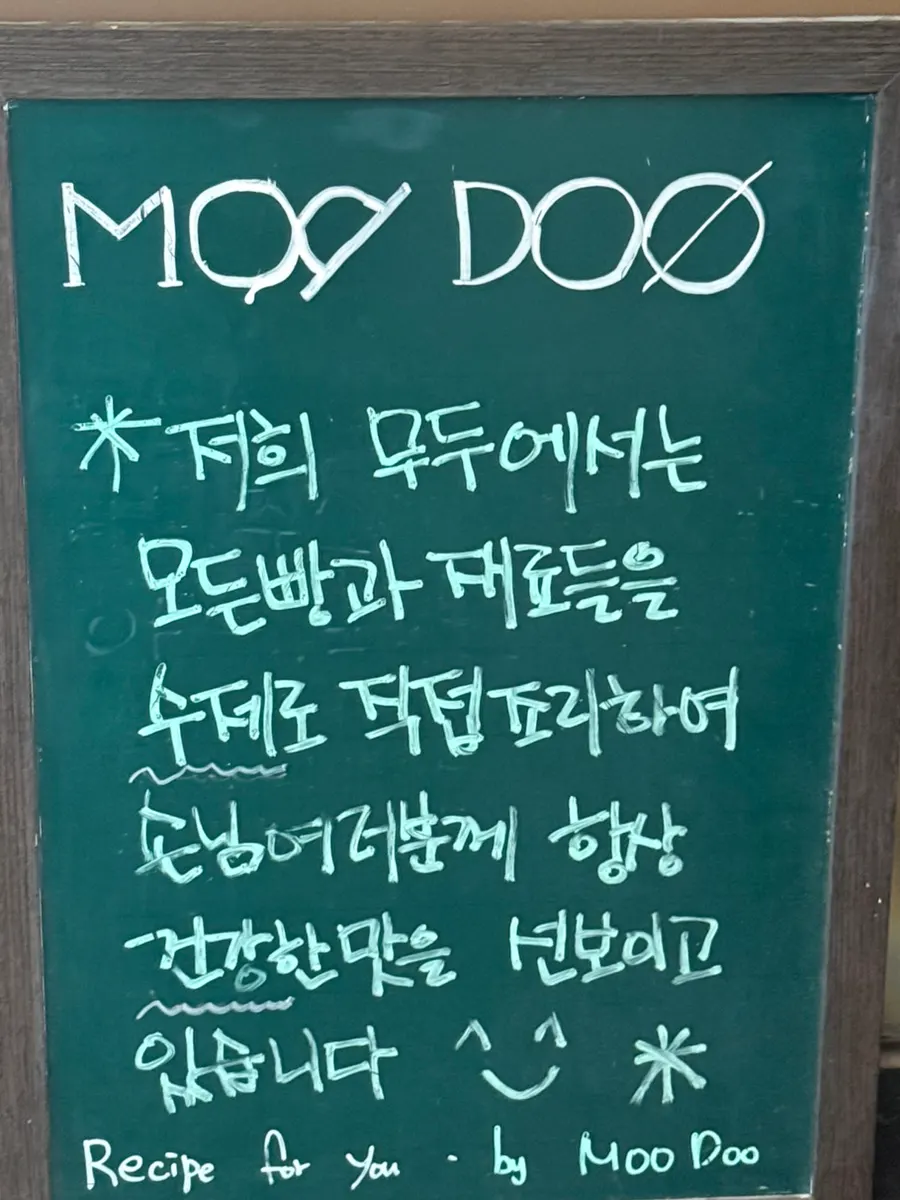 MOO DOO
* 저희 모두에서는
모든빵과 재료들을
수제로 직접 조리하여
손님여러분께 항상
건강한 맛을 선보이고
있습니다 ^‿^ *
Recipe for you · by Moo Doo